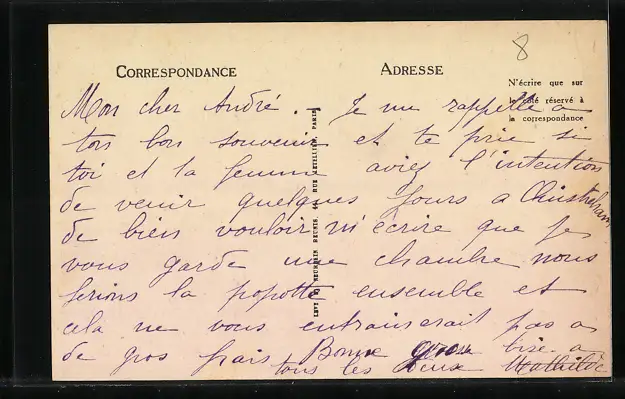 8
CORRESPONDANCE
ADRESSE
N'écrire que sur
le côté réservé à
la correspondance
Mon cher André. Je me rappelle a
ton bon souvenir et te prie si
toi et ta femme aviez l'intention
de venir quelques jours a Ouistreham
de bien vouloir m'écrire que je
vous garde une chambre nous
ferions la popotte ensemble et
cela ne vous entrainerait pas a
de gros frais Bonne grosse bise a
tous les deux Mathilde
REUNIS, RUE LETELLIER, PARIS